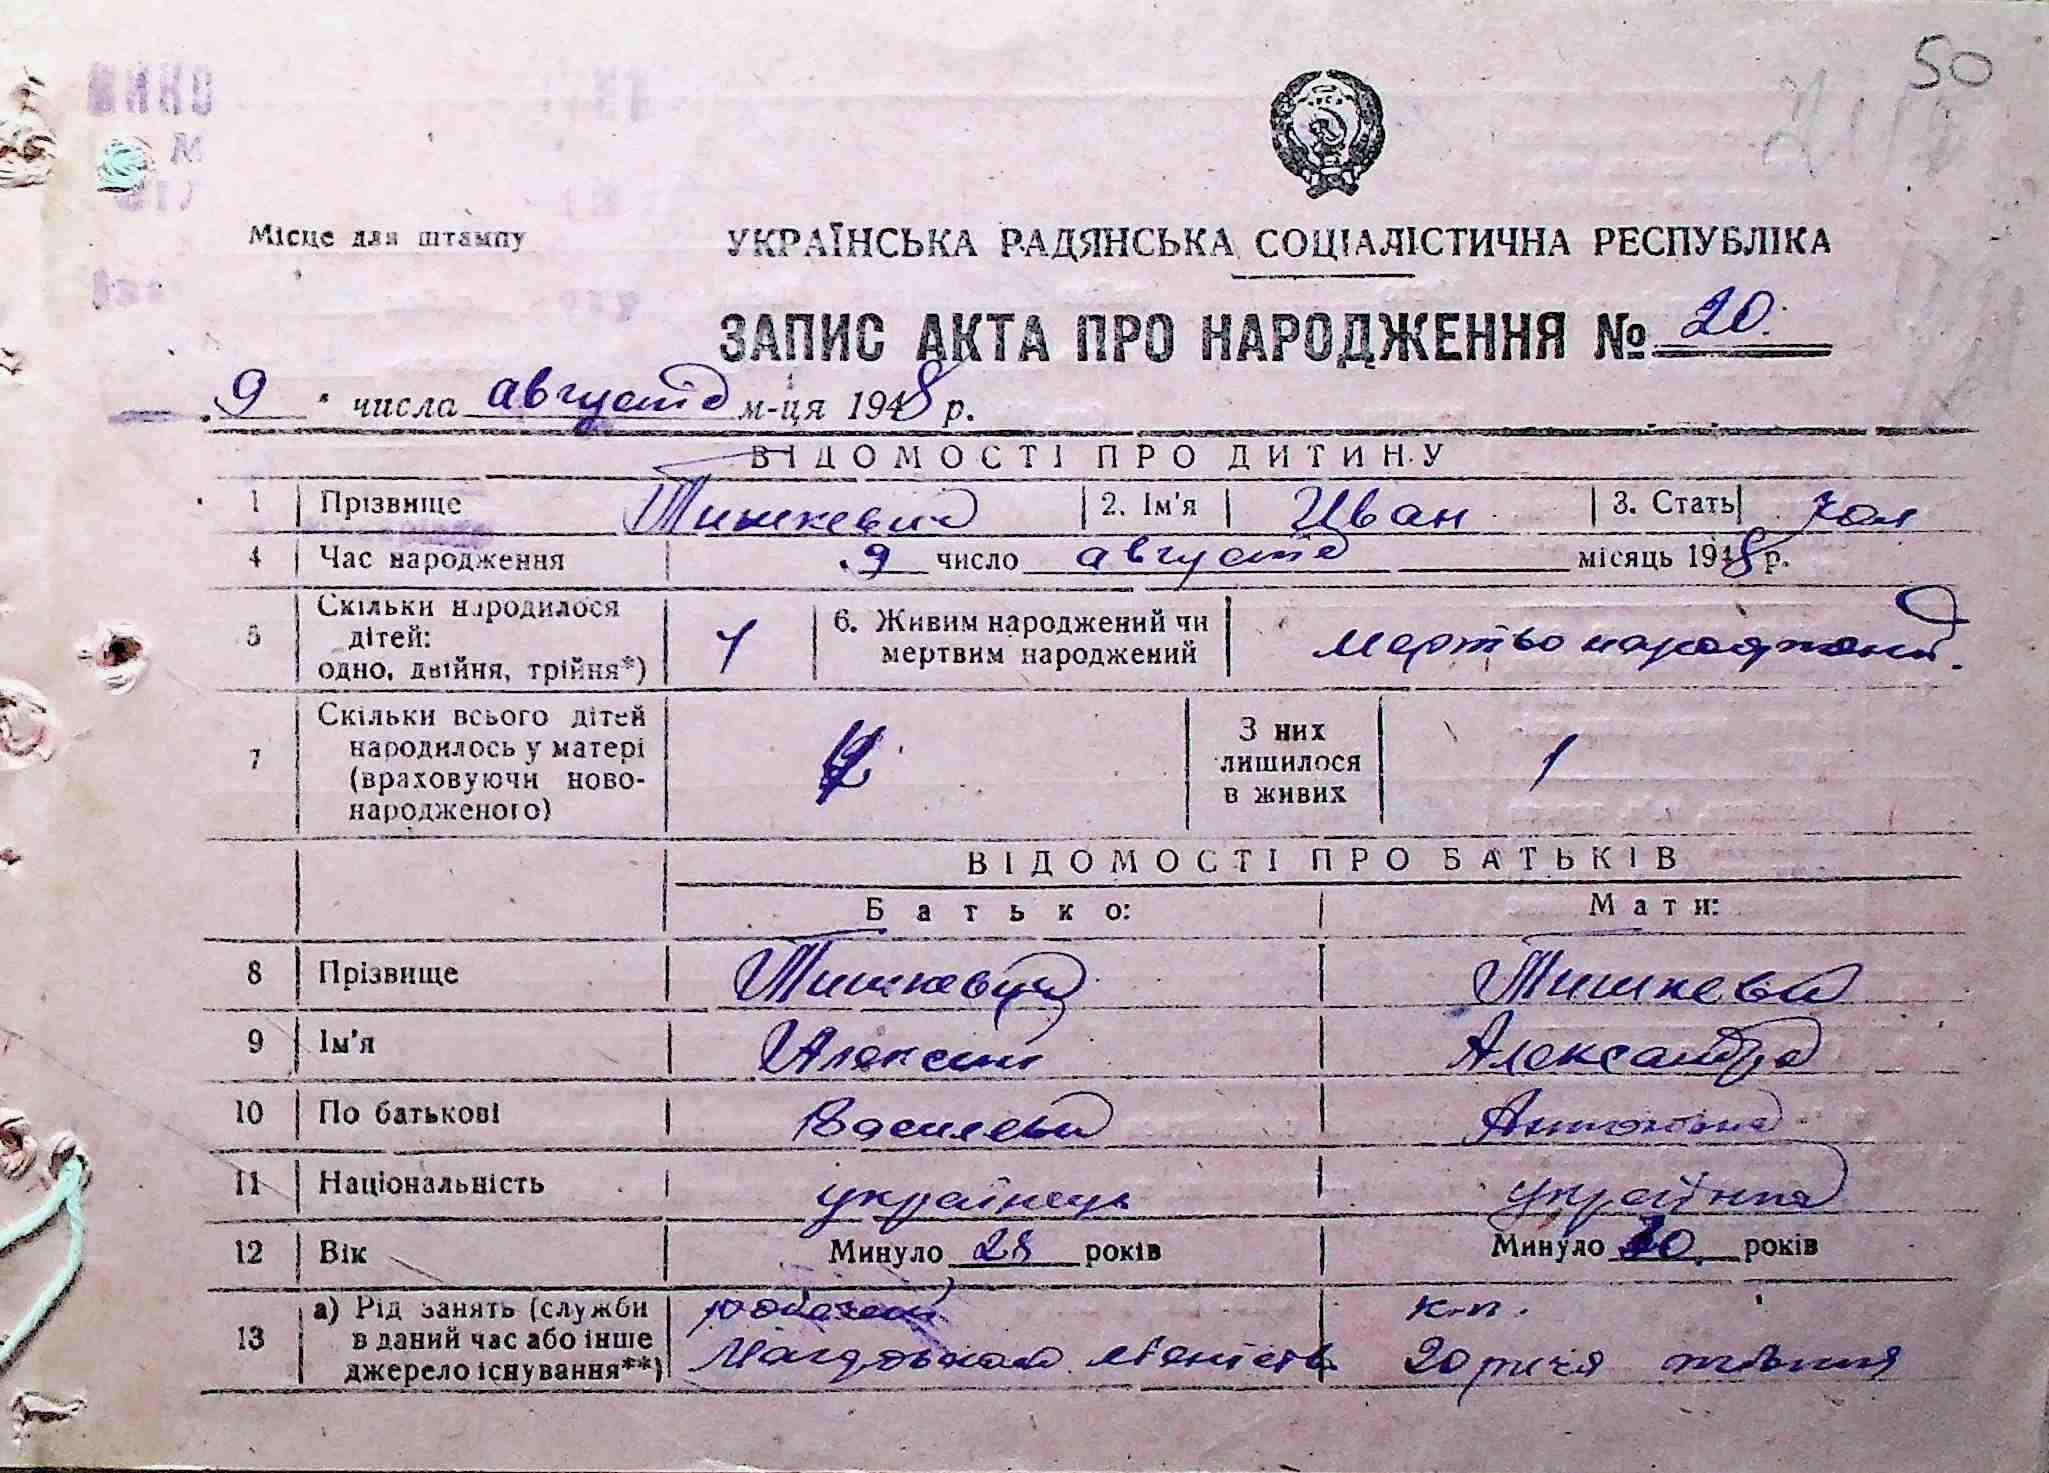 50
Місце для штампу
УКРАЇНСЬКА РАДЯНСЬКА СОЦІАЛІСТИЧНА РЕСПУБЛІКА
ЗАПИС АКТА ПРО НАРОДЖЕННЯ № 20.
9 " числа августа м-ця 1948 р.
ВІДОМОСТІ ПРО ДИТИНУ
1 Прізвище Тишкевич 2. Ім'я Иван 3. Стать чол
4 Час народження 9 число августа місяць 1948 р.
5 Скільки народилося дітей: одно, двійня, трійня*) 1 6. Живим народжений чи мертвим народжений мертво народжоний.
7 Скільки всього дітей народилось у матері (враховуючи новонародженого) 2 З них лишилося в живих 1
ВІДОМОСТІ ПРО БАТЬКІВ
Батько: Мати:
8 Прізвище Тишкевич Тишкевич
9 Ім'я Алексей Александра
10 По батькові Василевич Антонівна
11 Національність українець українка
12 Вік Минуло 28 років Минуло років
13 а) Рід занять (служби в даний час або інше джерело існування**)
к-п.
20 річя жовтня